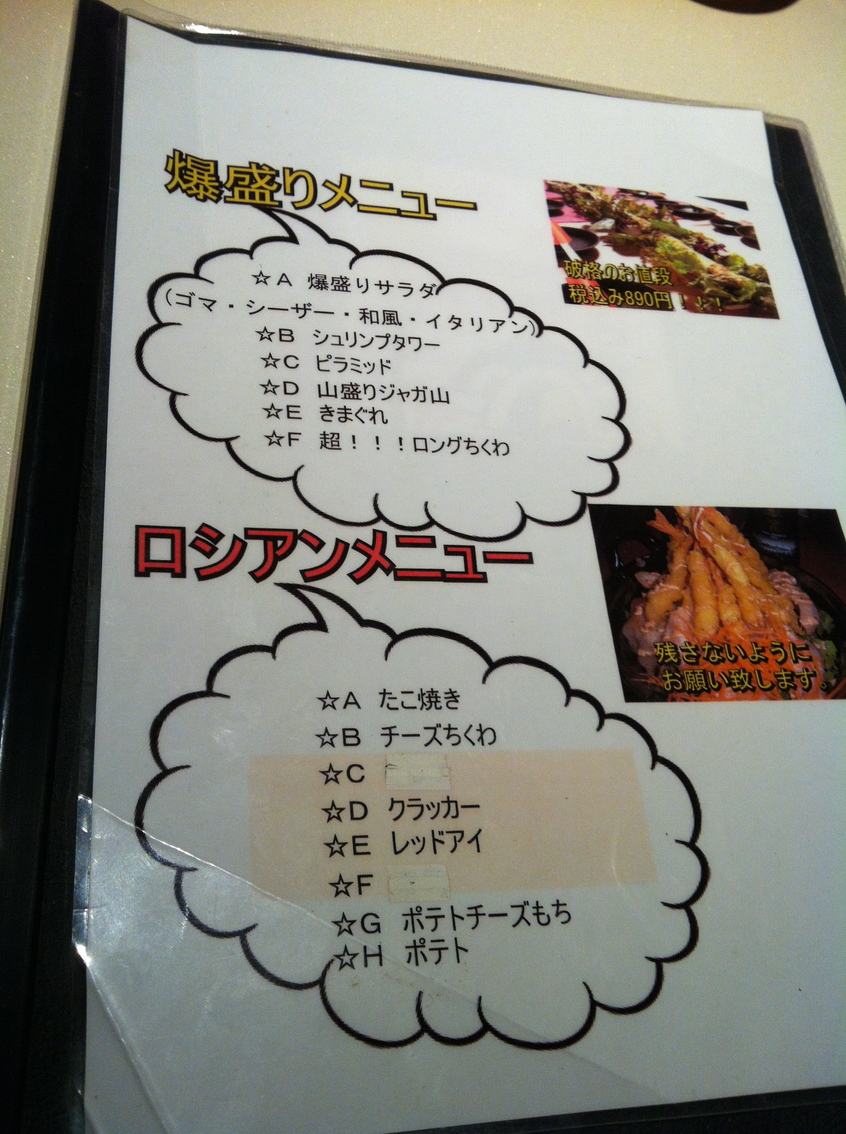 爆盛りメニュー
☆A 爆盛りサラダ
(ゴマ・シーザー・和風・イタリアン)
☆B シュリンプタワー
☆C ピラミッド
☆D 山盛りジャガ山
☆E きまぐれ
☆F 超！！！ロングちくわ
破格のお値段
税込み890円！！！
ロシアンメニュー
残さないように
お願い致します。
☆A たこ焼き
☆B チーズちくわ
☆C
☆D クラッカー
☆E レッドアイ
☆F
☆G ポテトチーズもち
☆H ポテト